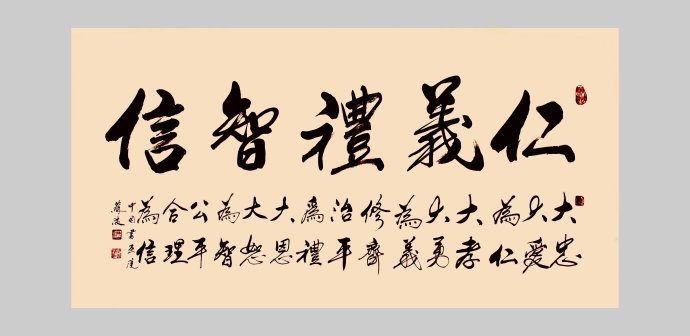 仁義禮智信
大忠
大愛
為仁
大孝
大勇
為義
修齊
治平
為禮
大恩
大恕
為智
公平
合理
為信